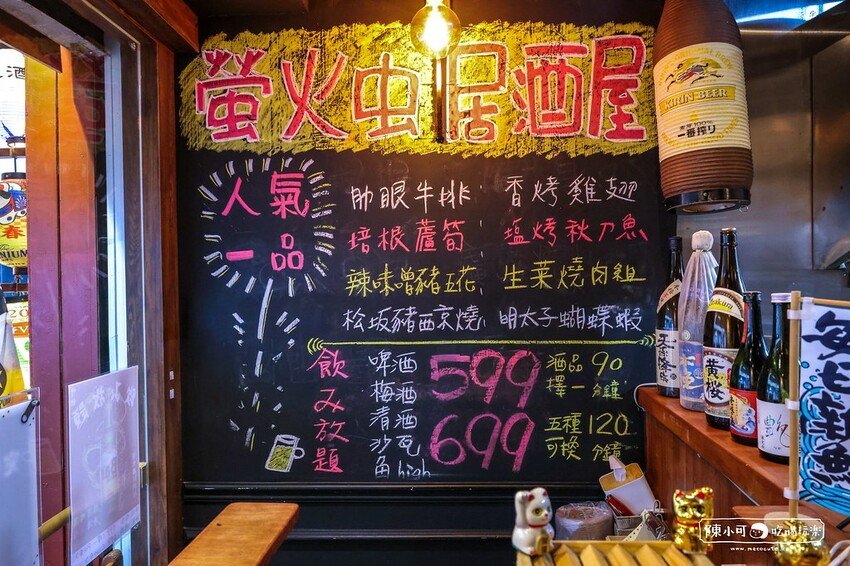 螢火虫居酒屋
人氣一品
肋眼牛排
香烤雞翅
培根蘆筍
塩烤秋刀魚
辣味噌豬五花
生菜燒肉組
松坂豬西京燒
明太子蝴蝶蝦
飲み放題
啤酒
梅酒
清酒
沙瓦
角high
599
酒品90
擇一分鐘
699
五種120
可換分鐘
KIRIN BEER
麦芽100%
一番搾り
黄桜
艶
酒
春
陳小可 吃喝玩樂